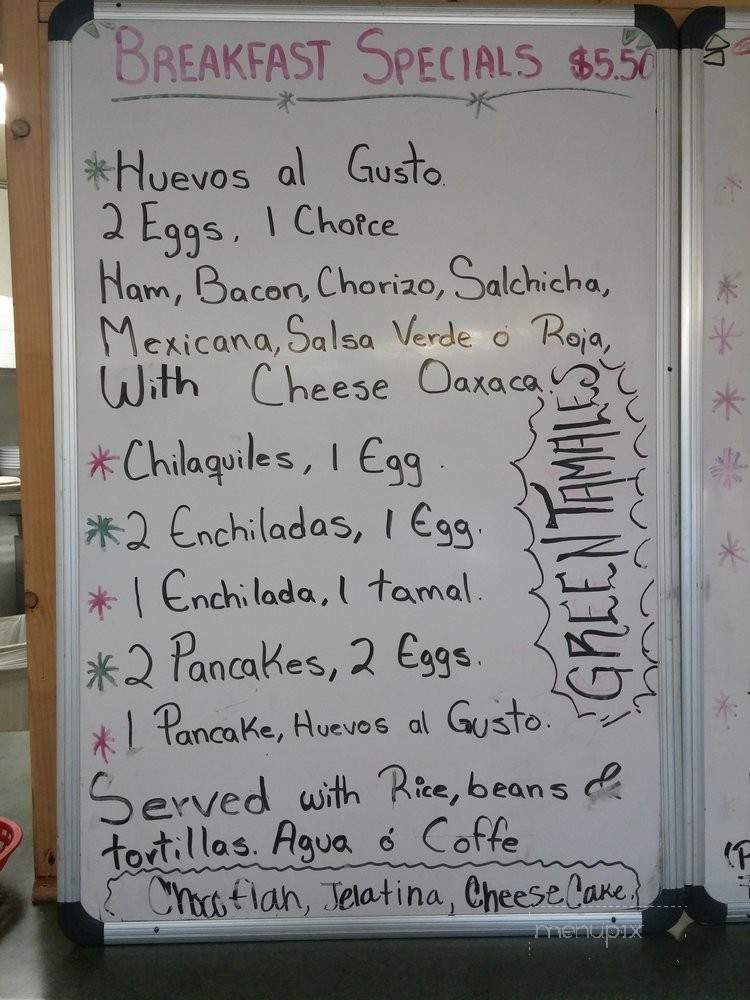 BREAKFAST SPECIALS $5.50
*Huevos al Gusto.
2 Eggs, 1 Choice
Ham, Bacon, Chorizo, Salchicha,
Mexicana, Salsa Verde ó Roja,
With Cheese Oaxaca.
*Chilaquiles, 1 Egg.
*2 Enchiladas, 1 Egg.
*1 Enchilada, 1 tamal.
*2 Pancakes, 2 Eggs.
*1 Pancake, Huevos al Gusto.
GREEN TAMALES
Served with Rice, beans &
tortillas. Agua ó Coffe
Chocoflan, Jelatina, CheeseCake.
menupix